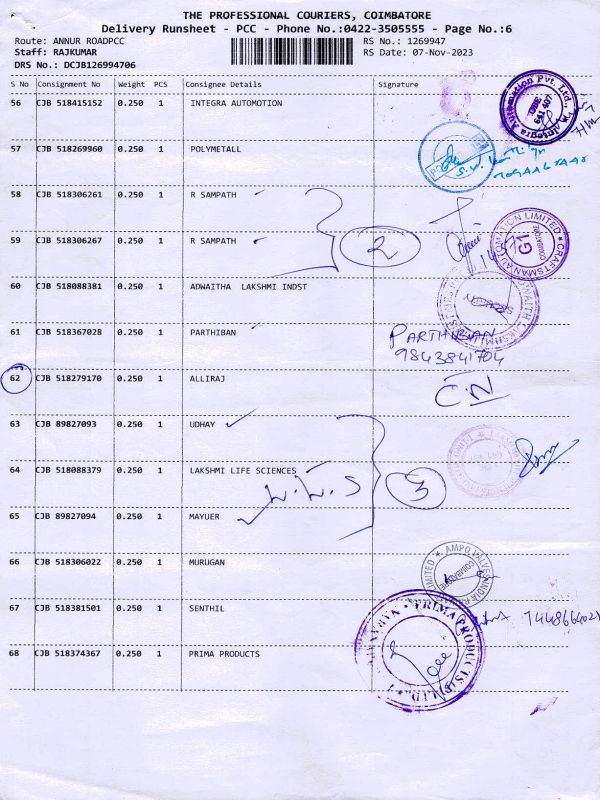 THE PROFESSIONAL COURIERS, COIMBATORE
Delivery Runsheet - PCC - Phone No.:0422-3505555 - Page No.:6
Route: ANNUR ROADPCC RS No.: 1269947
Staff: RAJKUMAR RS Date: 07-Nov-2023
DRS No.: DCJB126994706
S No Consignment No Weight PCS Consignee Details Signature
56 CJB 518415152 0.250 1 INTEGRA AUTOMOTION
57 CJB 518269960 0.250 1 POLYMETALL
58 CJB 518306261 0.250 1 R SAMPATH
2
59 CJB 518306267 0.250 1 R SAMPATH
CRAFTSMAN AUTOMATION LIMITED
G1
COIMBATORE
60 CJB 518088381 0.250 1 ADWAITHA LAKSHMI INDST
61 CJB 518367028 0.250 1 PARTHIBAN PARTHIBAN
9843841704
62 CJB 518279170 0.250 1 ALLIRAJ CN
63 CJB 89827093 0.250 1 UDHAY
64 CJB 518088379 0.250 1 LAKSHMI LIFE SCIENCES
3
65 CJB 89827094 0.250 1 MAYUER
66 CJB 518306022 0.250 1 MURUGAN
67 CJB 518381501 0.250 1 SENTHIL
68 CJB 518374367 0.250 1 PRIMA PRODUCTS